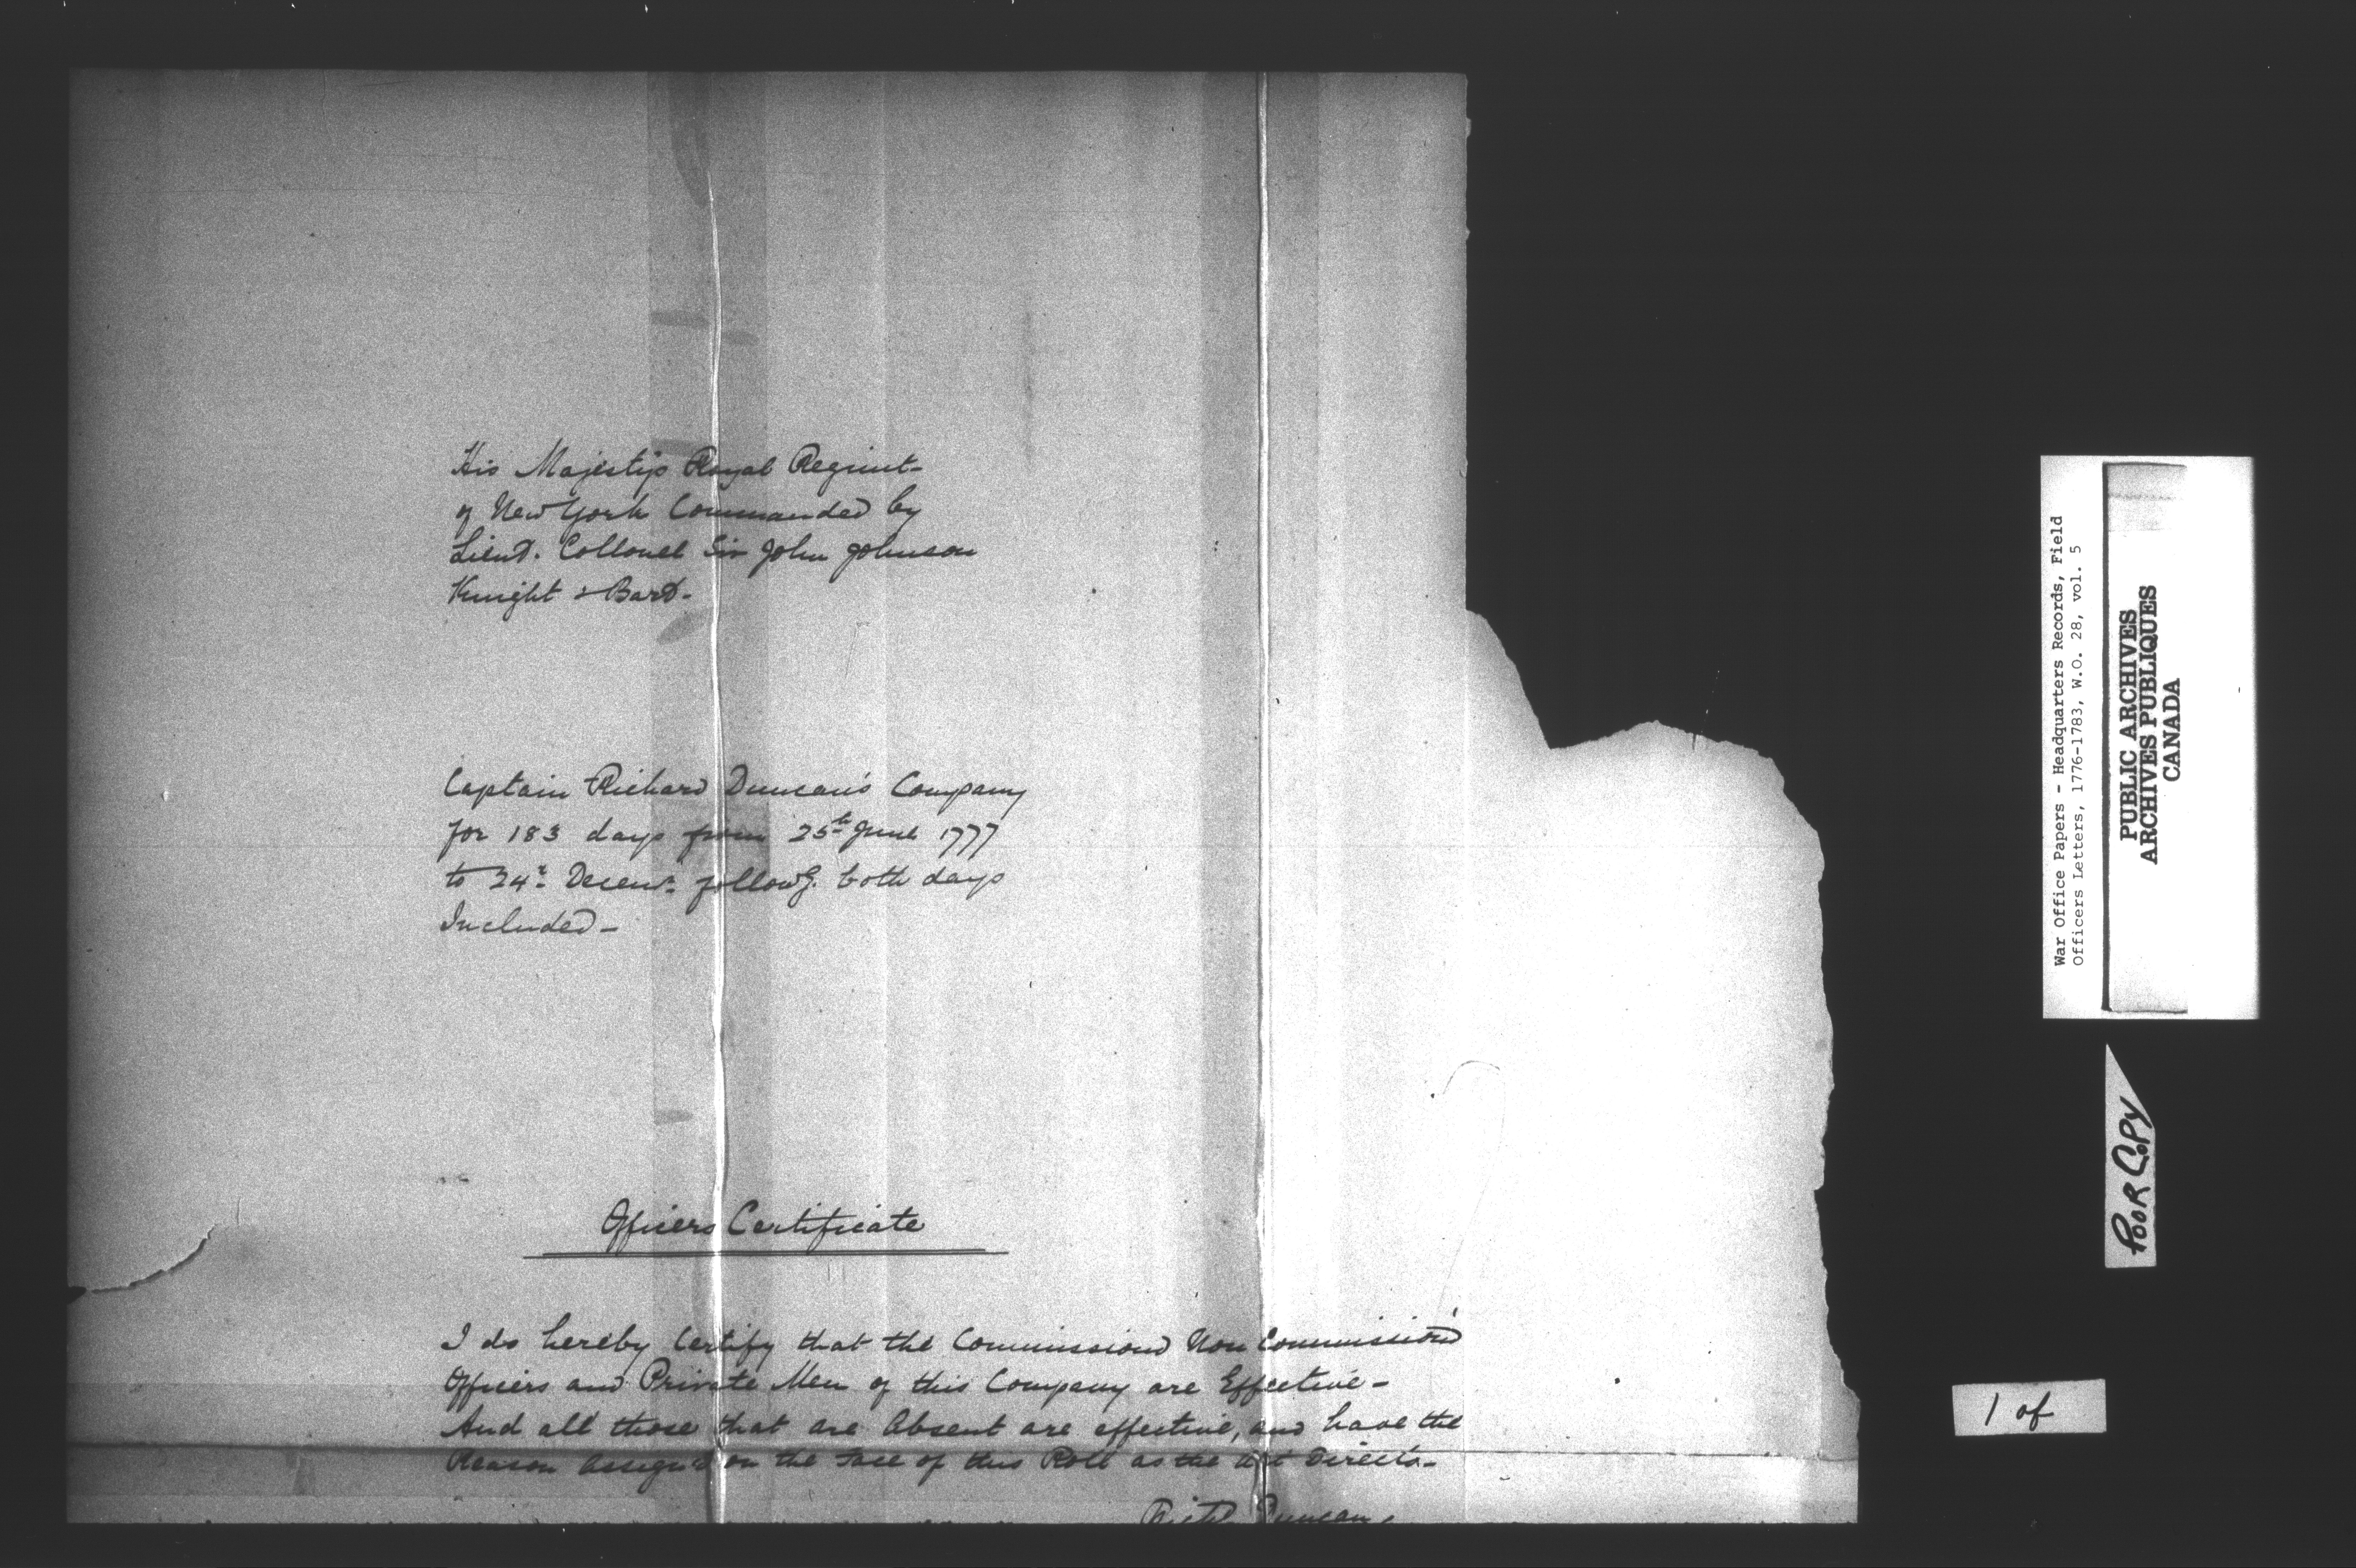 His Majestys Royal Regimt-
of New York Commanded by
Lieut. Collonel Sir John Johnson
Knight & Bart.-
Captain Richard Duncan's Company
for 183 days from 25th June 1777
to 24th Decemr. followg. both days
Included-
Officers Certificate
I do hereby Certify that the Commissiond Non Commission'd
Officers and Private Men of this Company are Effective-
And all those that are Absent are effective, and have the
Reason assign'd on the Face of this Roll as the Act Directs-
Richd Duncan
War Office Papers - Headquarters Records, Field
Officers Letters, 1776-1783, W.O. 28, vol. 5
PUBLIC ARCHIVES
ARCHIVES PUBLIQUES
CANADA
POOR COPY
1 of